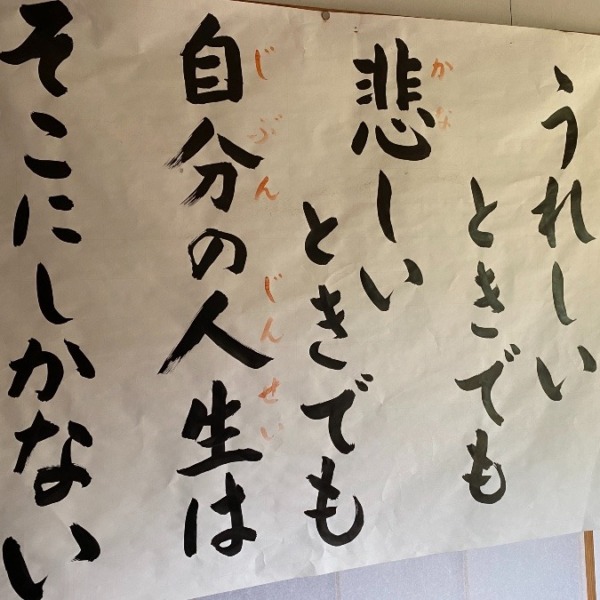 うれしい
ときでも
悲しい
かな
ときでも
自分の人生は
じぶん じんせい
そこにしかない